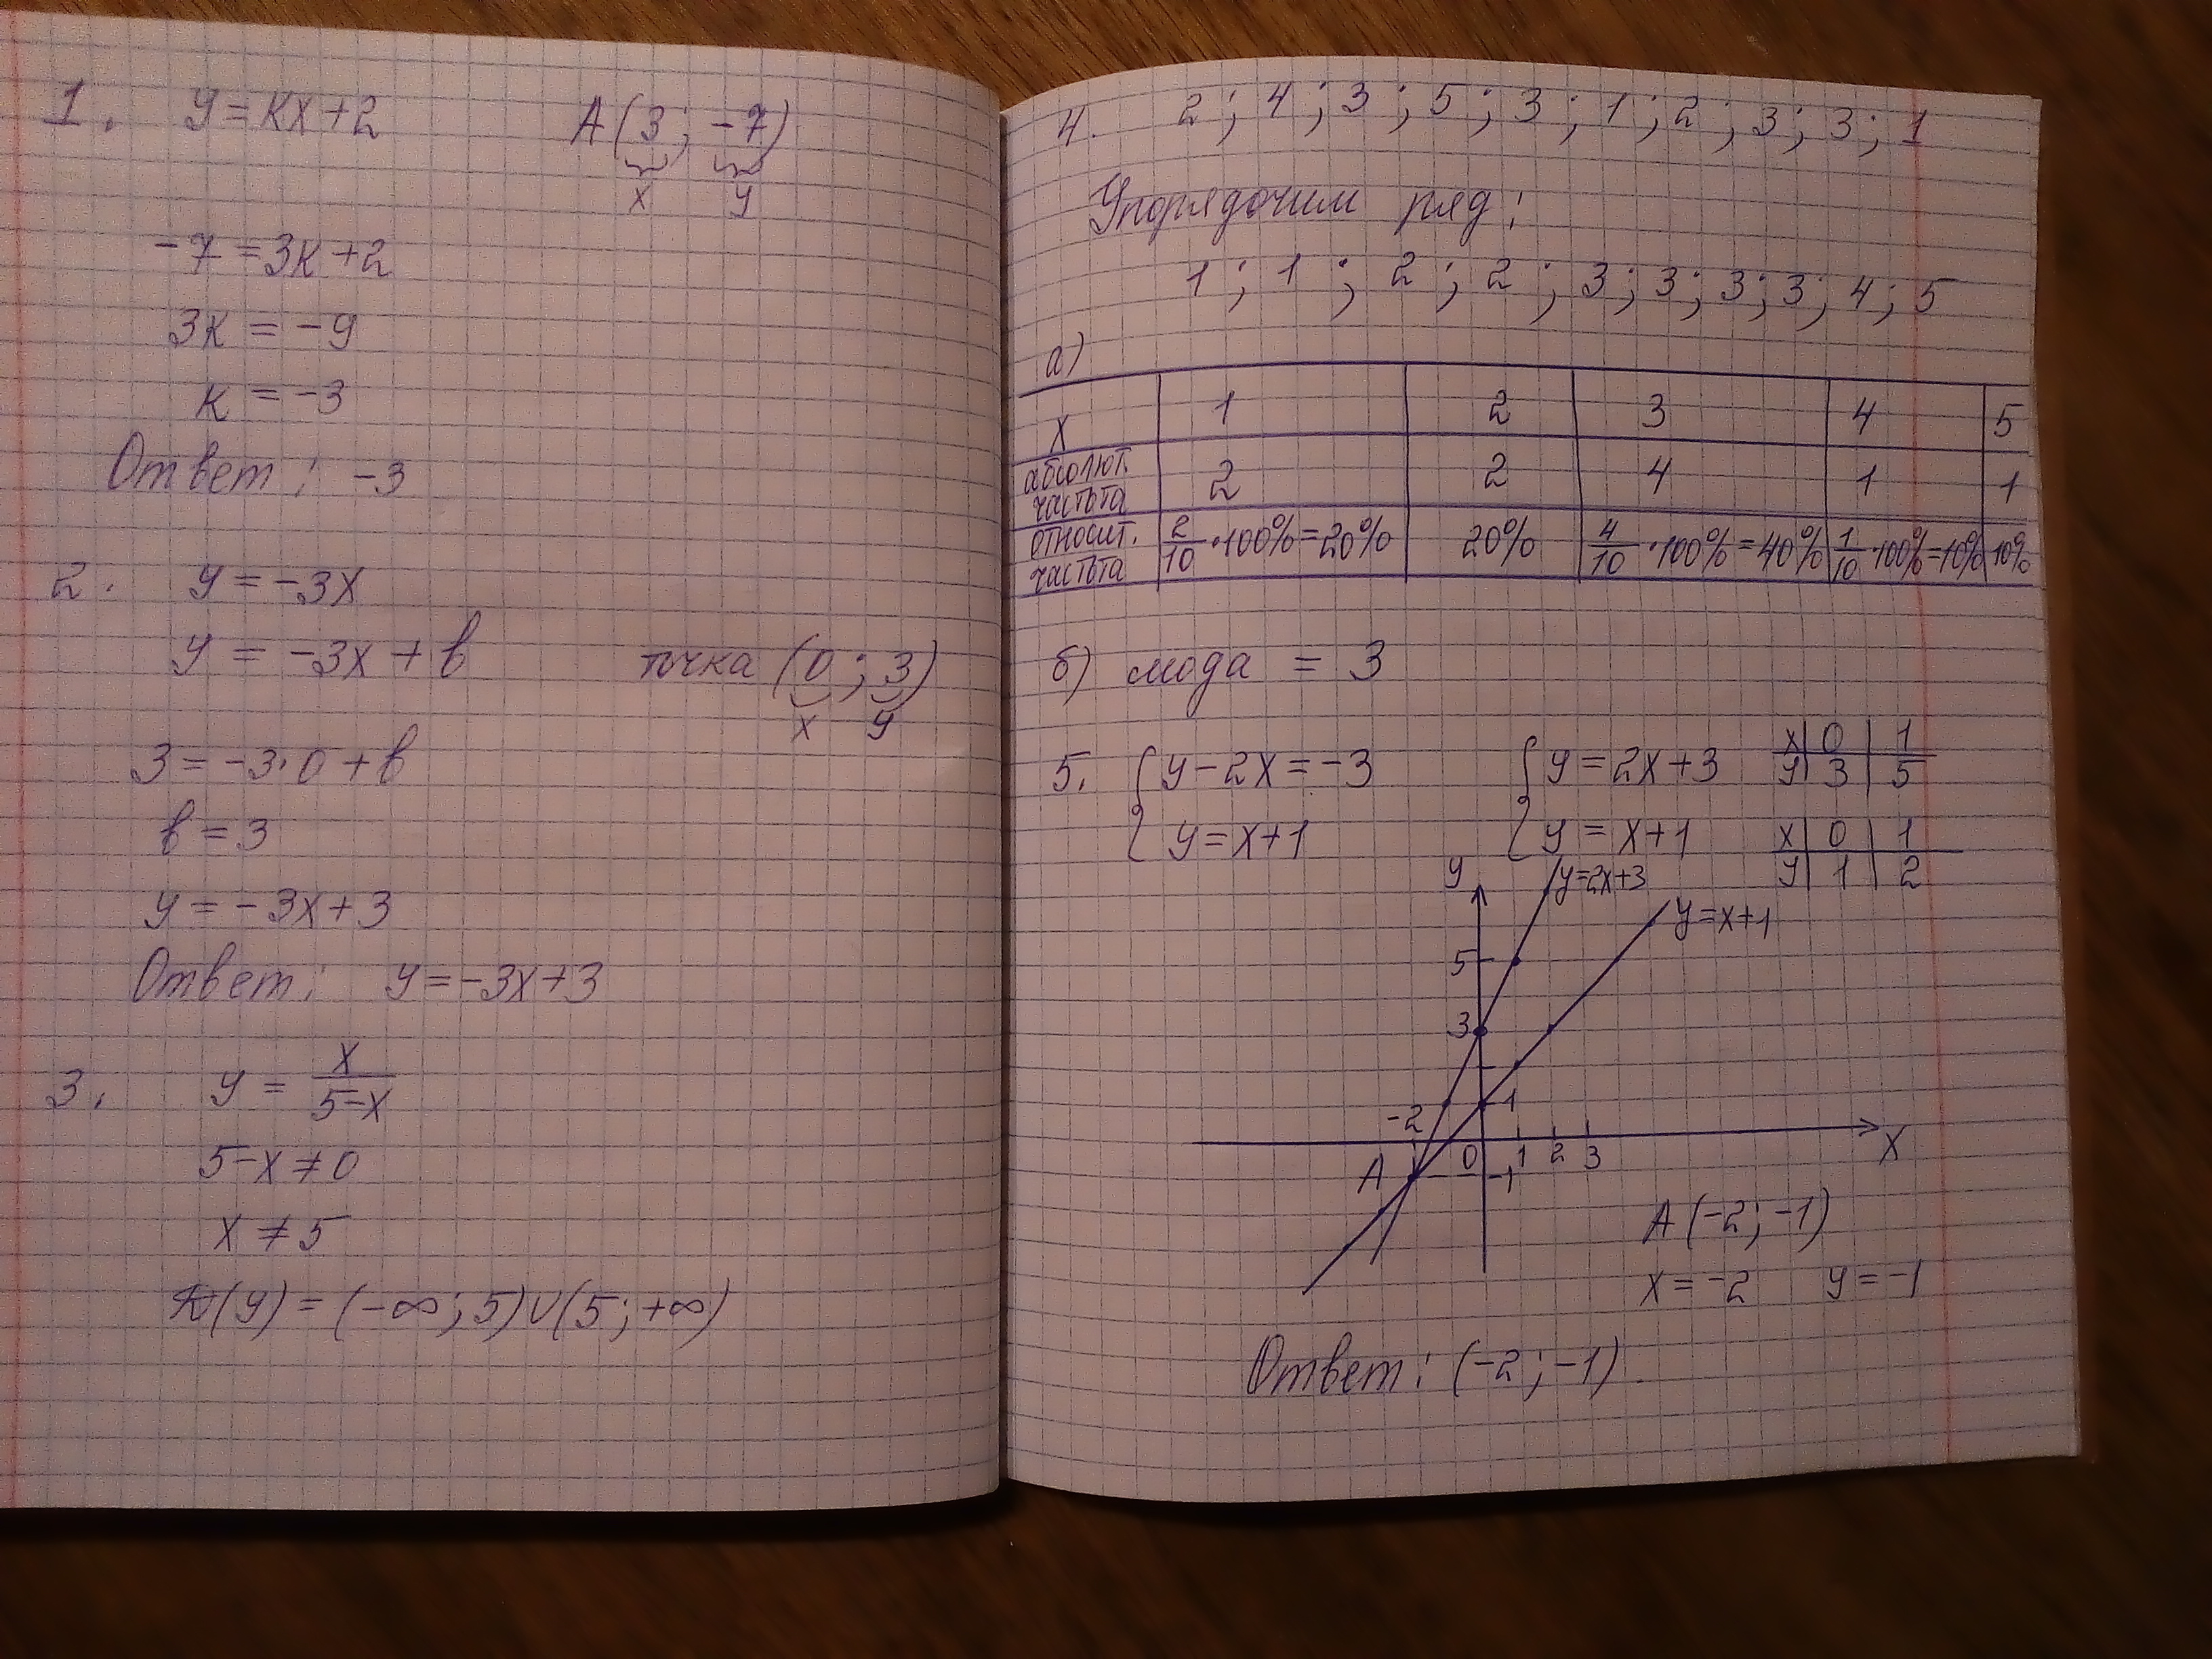 1. y = kx + 2    A(3; -7)
x    y
-7 = 3k + 2
3k = -9
k = -3
Ответ: -3
2. y = -3x
y = -3x + b    точка (0; 3)
x    y
3 = -3·0 + b
b = 3
y = -3x + 3
Ответ: y = -3x + 3
3. y = x/(5-x)
5 - x ≠ 0
x ≠ 5
(y) = (-∞; 5)∪(5; +∞)
4. 2; 4; 3; 5; 3; 1; 2; 3; 3; 1
Упорядочим ряд:
1; 1; 2; 2; 3; 3; 3; 3; 4; 5
а)
x    1    2    3    4    5
абсолют. частота    2    2    4    1    1
относит. частота    2/10 · 100% = 20%    20%    4/10 · 100% = 40%    1/10 · 100% = 10%    10%
б) мода = 3
5. { y - 2x = -3    { y = 2x + 3    x 0 1
y 3 5
y = x + 1    y = x + 1    x 0 1
y 1 2
y    y = 2x + 3
y = x + 1
5
3
-2    1
0    1    2    3    x
A    -1
A(-2; -1)
x = -2    y = -1
Ответ: (-2; -1).